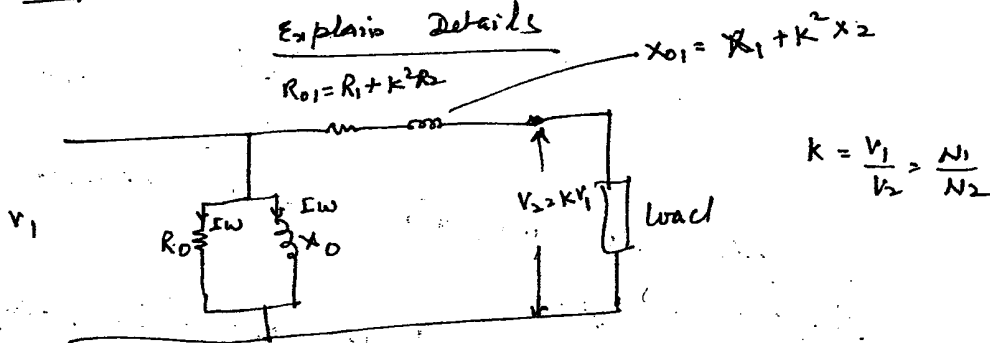 Explain Details
X01 = X1 + K²X2
R01 = R1 + K²R2
K = V1/V2 = N1/N2
V1
Iw
Iw
R0
X0
V2 = KV1
Load